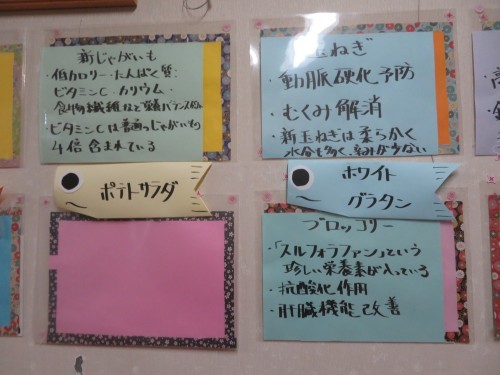 新じゃがいも
・低カロリー・たんぱく質・
ビタミンC・カリウム・
食物繊維など栄養バランス
・ビタミンCは普通のじゃがいもの
4倍含まれている
玉ねぎ
・動脈硬化予防
・むくみ解消
・新玉ねぎは柔らかく
水分も多く、辛みが少ない
ポテトサラダ
ホワイト
グラタン
ブロッコリー
・「スルフォラファン」という
珍しい栄養素が入っている
・抗酸化作用
・肝臓機能改善